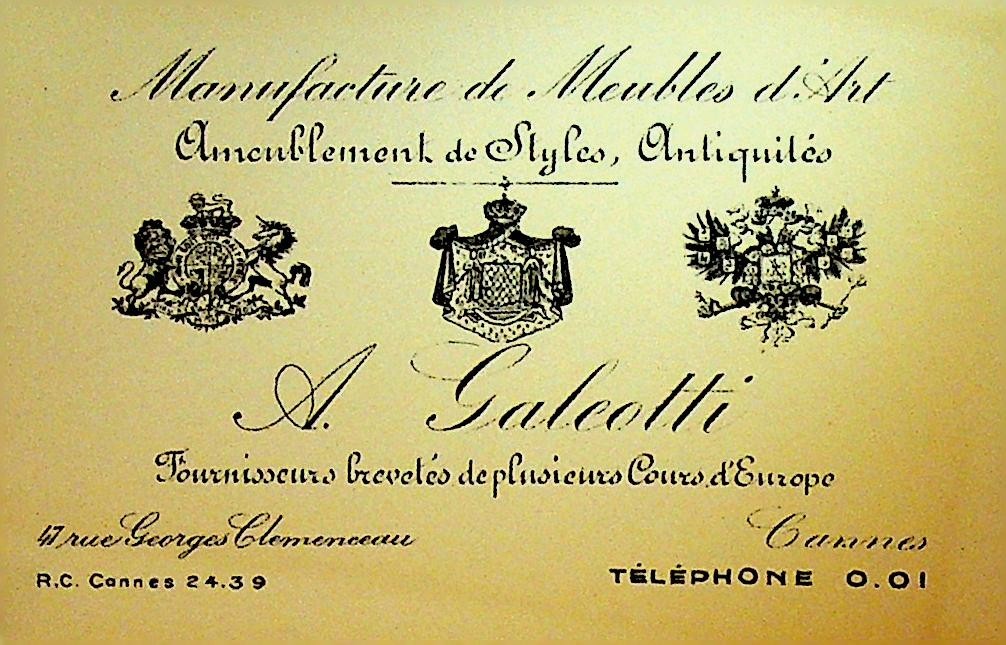 Manufacture de Meubles d'Art
Ameublement de Styles, Antiquités
A. Galeotti
Fournisseurs brevetés de plusieurs Cours d'Europe
47 rue Georges Clemenceau
Cannes
R.C. Cannes 24.39
TÉLÉPHONE 0.01